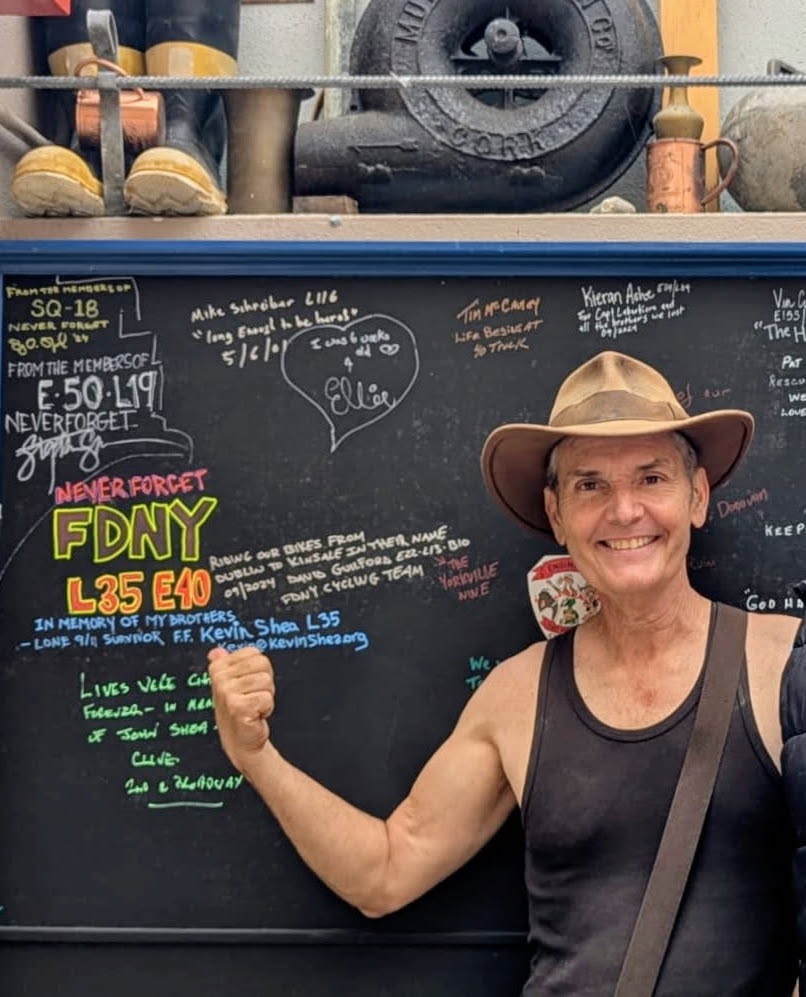 CORK
FROM THE MEMBERS OF
SQ-18
NEVER FORGET
FROM THE MEMBERS OF
E·50·L19
NEVER FORGET
Mike Schreiber L116
"long Enough to be heros"
5/6/01
I was 6 weeks
old
Ellie
TIM McCAULEY
LIFE BEGINS AT
TRUCK
Kieran Ashe
For Capt
all the brothers we lost
09/2024
E155/
"The H
PAT
RESCU
WE
LOVE
of our
Donovan
KEEP
"GOD HA
NEVER FORGET
FDNY
L35 E40
RIDING OUR BIKES FROM
DUBLIN TO KINSALE IN THEIR NAME
09/2024 DAVID GUILFORD E22-L13-B10
FDNY CYCLING TEAM
THE
YORKVILLE
NINE
IN MEMORY OF MY BROTHERS
- LONE 9/11 SURVIVOR F.F. Kevin Shea L35
Kevin@KevinShea.org
LIVES WERE
FOREVER - IN
OF JOHN SHEA -
CLIVE
2ND & BROADWAY
We